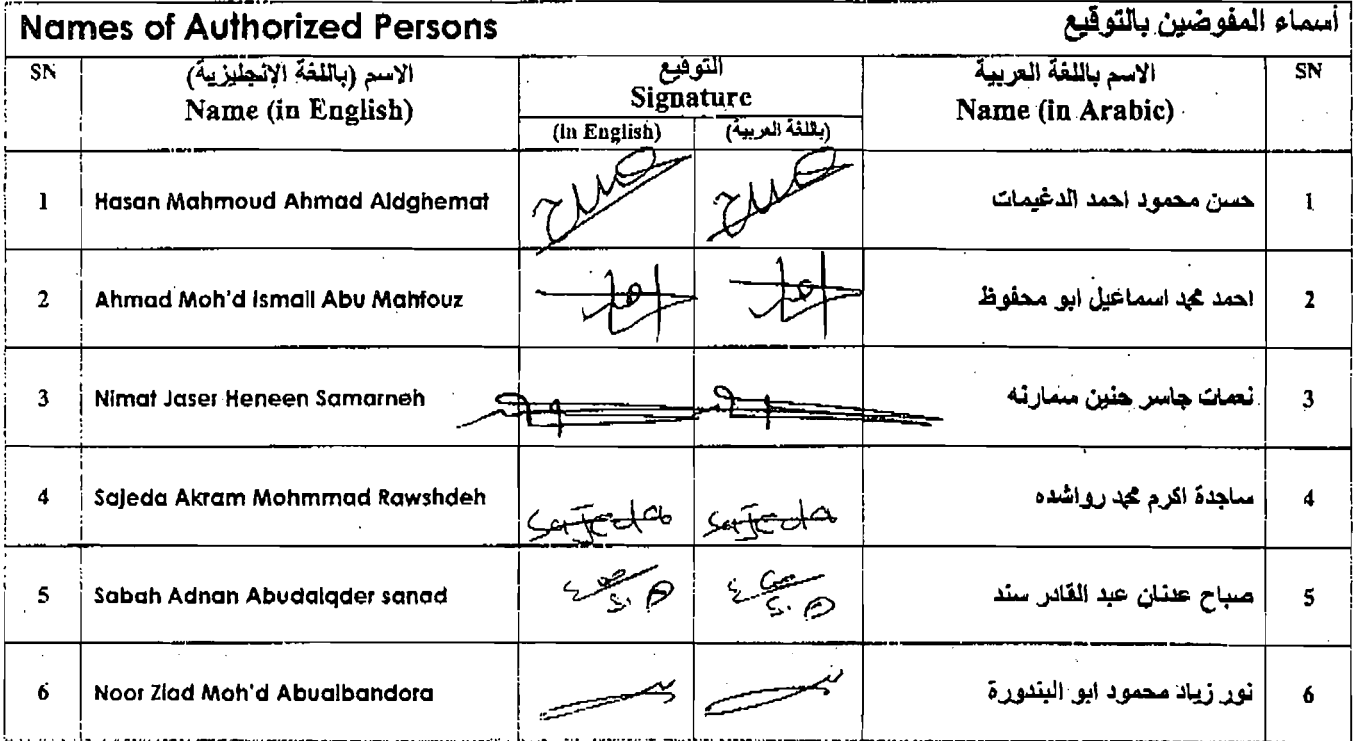 Names of Authorized Persons أسماء المفوضين بالتوقيع
SN الاسم (باللغة الإنجليزية) التوقيع الاسم باللغة العربية SN
Name (in English) Signature Name (in Arabic)
(In English) (باللغة العربية)
1 Hasan Mahmoud Ahmad Aldghemat حسن محمود احمد الدغيمات 1
2 Ahmad Moh'd Ismail Abu Mahfouz احمد محمد اسماعيل ابو محفوظ 2
3 Nimat Jaser Heneen Samarneh نعمات جاسر حنين سمارنه 3
4 Sajeda Akram Mohmmad Rawshdeh Sajeda Sajeda ساجدة اكرم محمد رواشده 4
5 Sabah Adnan Abudalqder sanad S.A S.A صباح عدنان عبد القادر سند 5
6 Noor Ziad Moh'd Abualbandora نور زياد محمود ابو البندورة 6